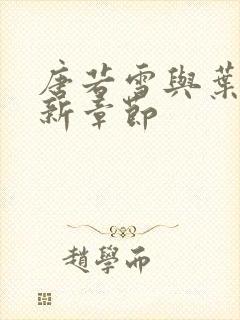 唐若雪與葉
新章節
趙學而